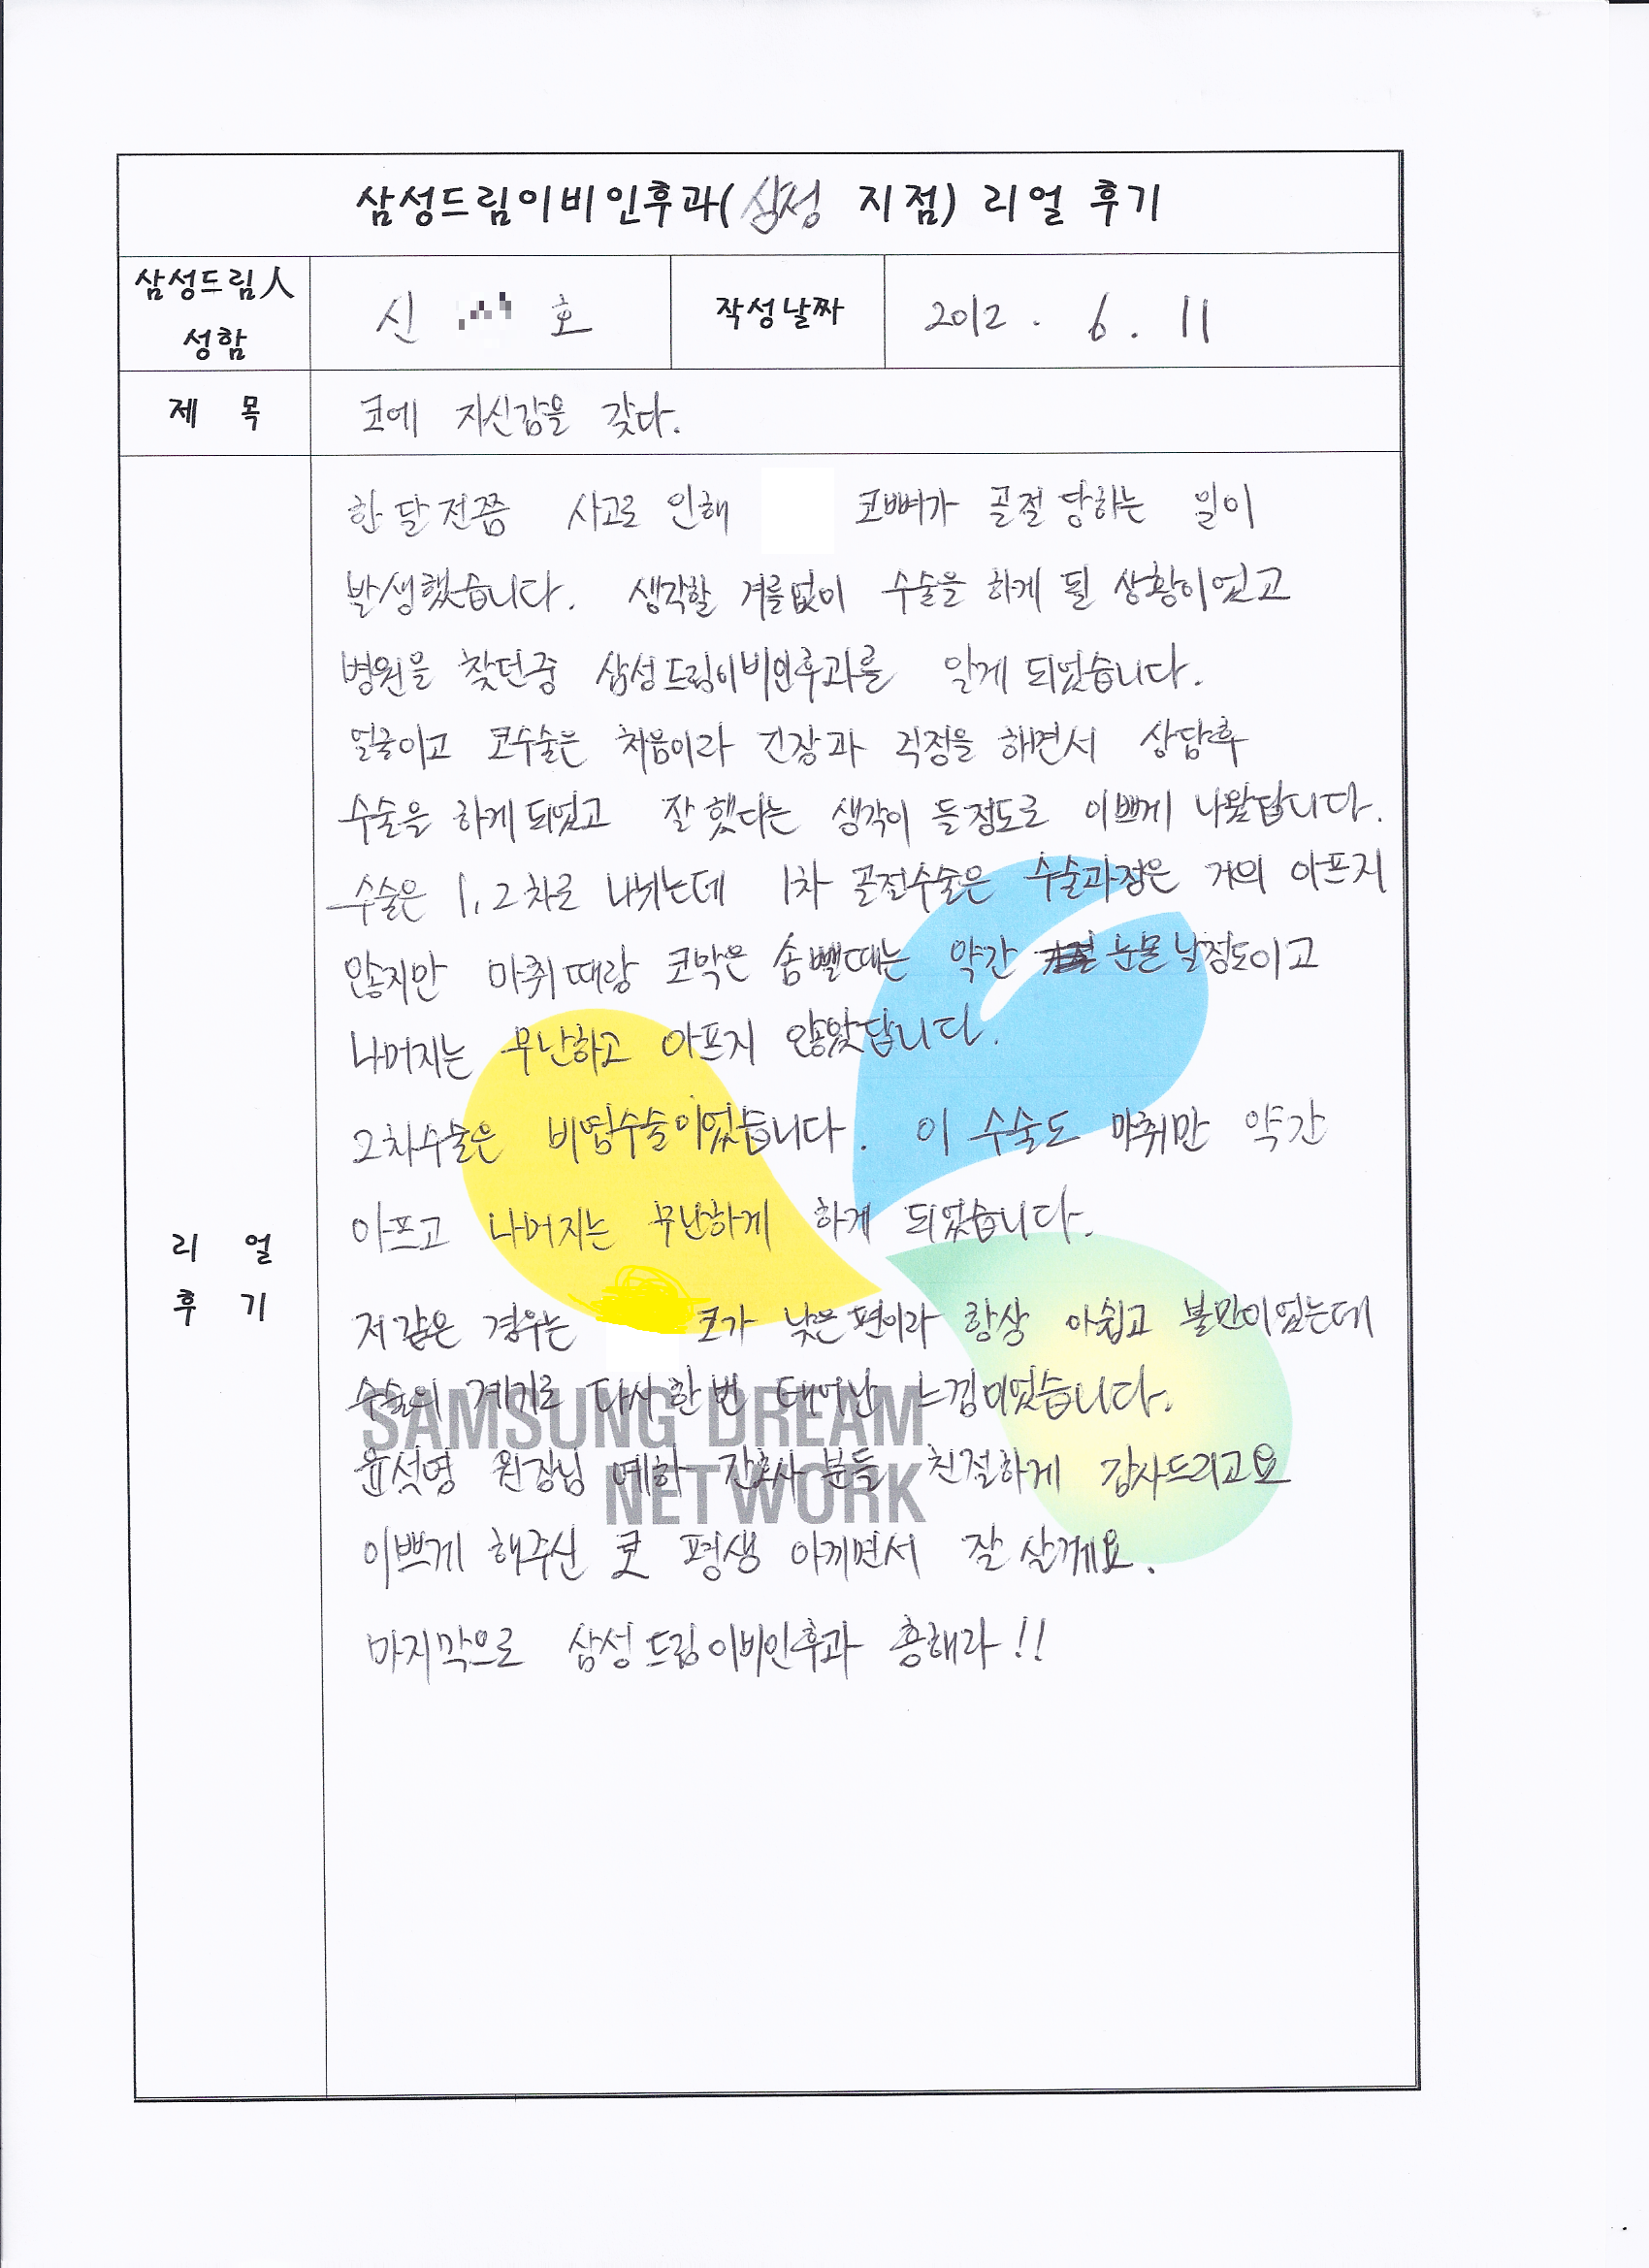 삼성드림이비인후과(삼성 지점) 리얼 후기
삼성드림人
성함
신 호
작성날짜
2012. 6. 11
제 목
코에 자신감을 갖다.
한달전쯤 사고로 인해 코뼈가 골절 당하는 일이
발생했습니다. 생각할 겨를없이 수술을 하게 될 상황이었고
병원을 찾던중 삼성드림이비인후과를 알게 되었습니다.
얼굴이고 코수술은 처음이라 긴장과 걱정을 하면서 상담후
수술을 하게되었고 잘했다는 생각이 들정도로 이쁘게 나왔답니다.
수술은 1, 2차로 나뉘는데 1차 골절수술은 수술과정은 거의 아프지
않지만 마취때랑 코막은 솜뺄때는 약간 눈물날정도이고
나머지는 무난하고 아프지 않았답니다.
2차수술은 비염수술이었습니다. 이 수술도 마취만 약간
아프고 나머지는 무난하게 하게 되었습니다.
리 얼
후 기
저같은 경우는 코가 낮은편이라 항상 아쉽고 불만이었는데
수술의 계기로 다시한번 태어난 느낌이었습니다.
SAMSUNG DREAM
윤석영 원장님 예하 간호사분들 친절하게 감사드리고요
NETWORK
이쁘게 해주신 코 평생 아끼면서 잘 살게요.
마지막으로 삼성드림이비인후과 흥해라!!